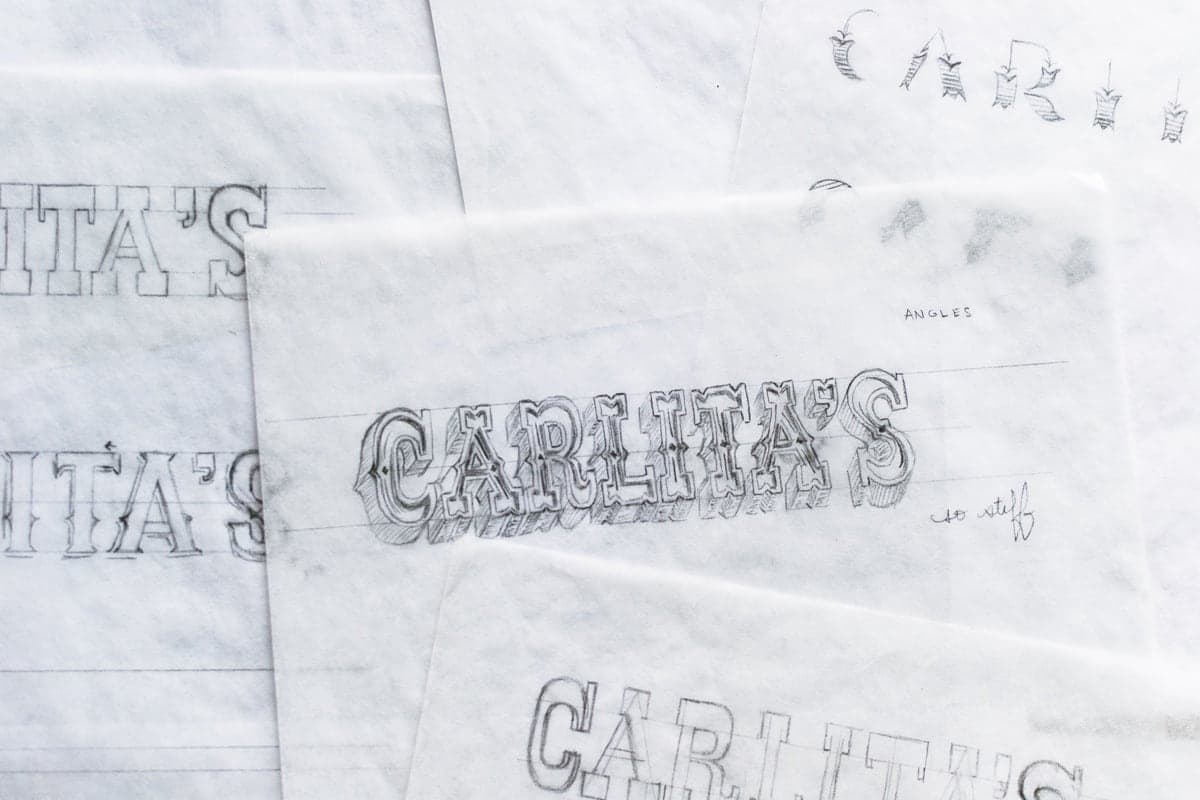 CARLI
ITA'S
ANGLES
CARLITA'S
so stiff
ITA'S
CARLITA'S